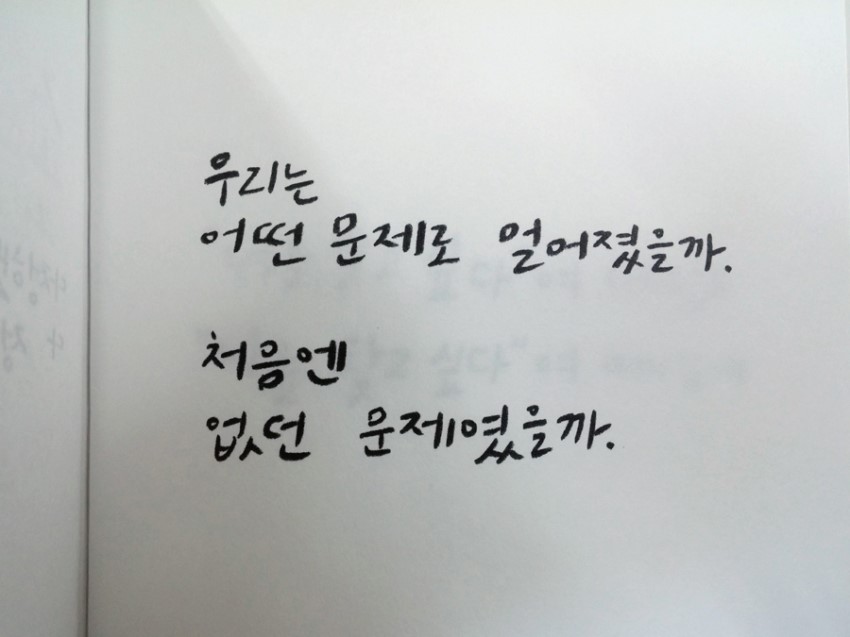 우리는
어떤 문제로 멀어졌을까.
처음엔
없던 문제였을까.